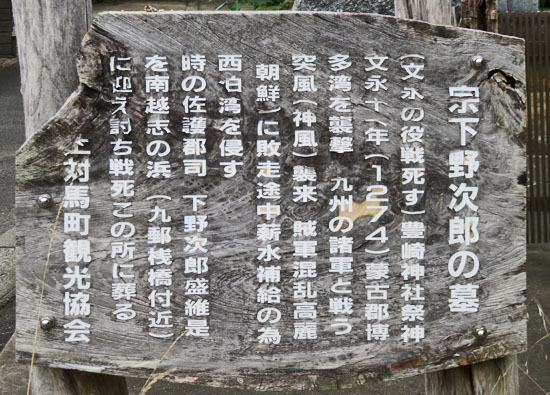 宗下野次郎の墓
(文永の役戦死す)豊崎神社祭神
文永十一年(1274)蒙古郡博
多湾を襲撃 九州の諸軍と戦う
突風(神風)襲来 賊軍混乱高麗
朝鮮)に敗走途中薪水補給の為
西泊湾を侵す
時の佐護郡司 下野次郎盛維是
を南越志の浜(九郵桟橋付近)
に迎え討ち戦死この所に葬る
上対馬町観光協会